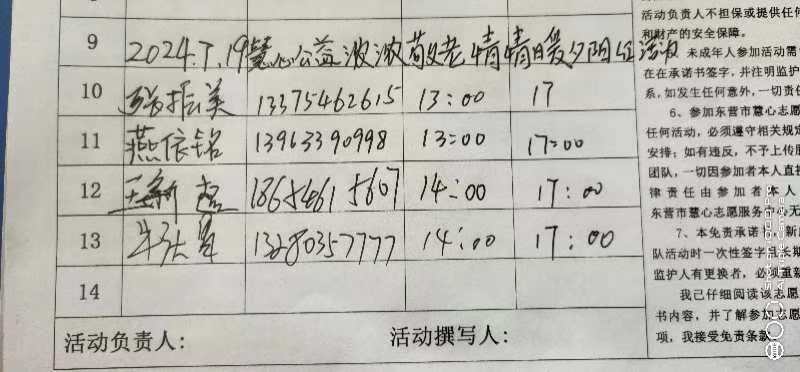 9 2024.7.19慧心公益浓浓敬老情情暖夕阳红活动
10 张振美 13375462615 13:00 17
11 燕依铭 13963390998 13:00 17:00
12 18654615607 14:00 17:00
13 13280357777 14:00 17:00
14
活动负责人: 活动撰写人:
活动负责人不担保或提供任何
和财产的安全保障。
未成年人参加活动需
在在承诺书签字,并注明监护
系,如发生任何意外,一切责任
6、参加东营市慧心志愿
任何活动,必须遵守相关规定
安排;如有违反,不予上传服
团队,一切因参加者本人直接
律责任由参加者本人
东营市慧心志愿服务中心无
7、本免责承诺书,新
队活动时一次性签字且长期
监护人有更换者,必须重新
我已仔细阅读该志愿
书内容,并了解参加志愿
项,我接受免责条款